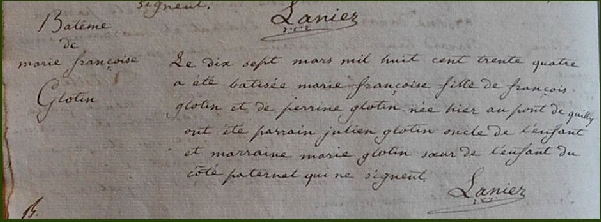 signent.
Laniez
vce
Batême
de
marie françoise
Glotin
Le dix sept mars mil huit cent trente quatre
a été batisée marie françoise fille de françois
glotin et de perrine glotin née hier au pont de quilly
ont été parrain julien glotin oncle de l'enfant
et marraine marie glotin sœur de l'enfant du
côté paternel qui ne signent.
Laniez
B.